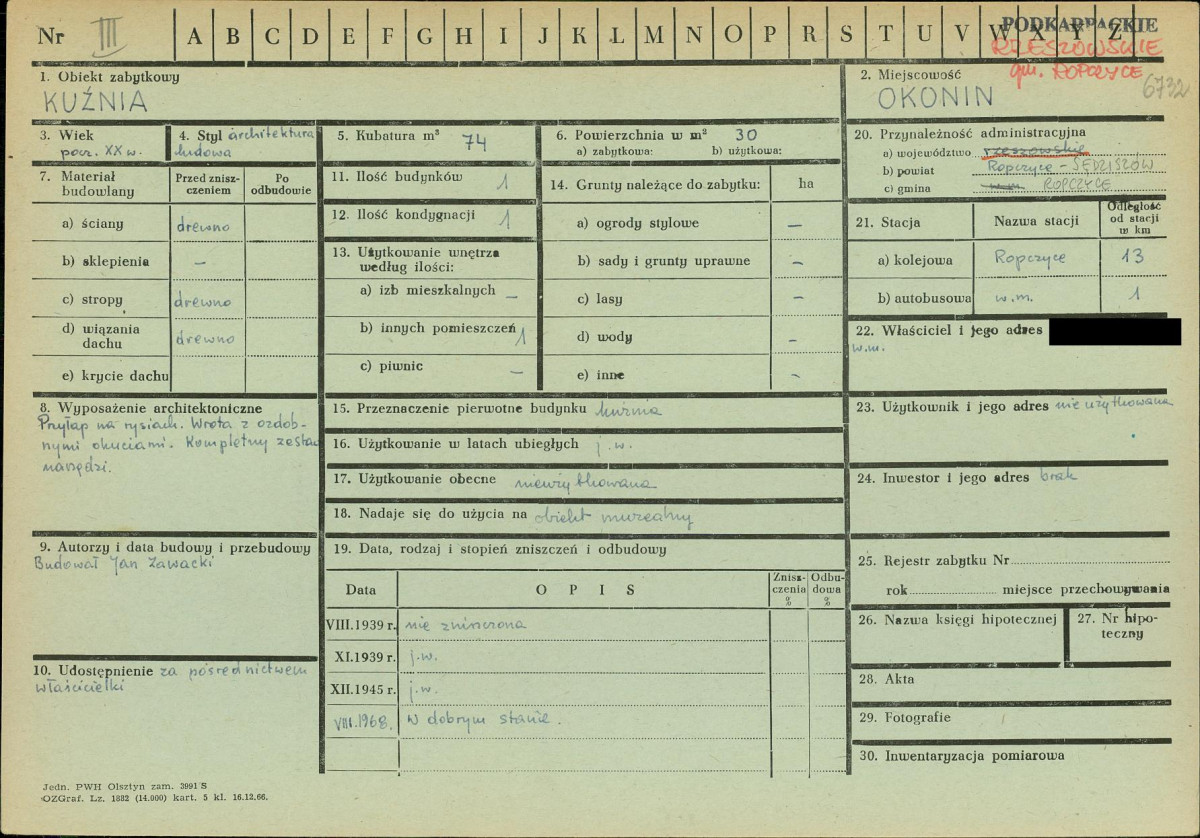 Nr III A B C D E F G H I J K L M N O P R S T U V W X Y Z
PODKARPACKIE
RZESZOWSKIE
gm. ROPCZYCE
6732
1. Obiekt zabytkowy
KUŹNIA
2. Miejscowość
OKONIN
3. Wiek
pocz. XX w.
4. Styl architektura
ludowa
5. Kubatura m³ 74
6. Powierzchnia w m² 30
a) zabytkowa: b) użytkowa:
7. Materiał budowlany
Przed znisz-
czeniem
Po
odbudowie
a) ściany drewno
b) sklepienia –
c) stropy drewno
d) wiązania
dachu drewno
e) krycie dachu
8. Wyposażenie architektoniczne
Przyłap na rysiach. Wrota z ozdob-
nymi okuciami. Kompletny zestaw
narzędzi.
9. Autorzy i data budowy i przebudowy
Budował Jan Zawacki
10. Udostępnienie za pośrednictwem
właścicielki
11. Ilość budynków 1
12. Ilość kondygnacji 1
13. Użytkowanie wnętrza
według ilości:
a) izb mieszkalnych –
b) innych pomieszczeń 1
c) piwnic –
14. Grunty należące do zabytku: ha
a) ogrody stylowe –
b) sady i grunty uprawne –
c) lasy –
d) wody –
e) inne –
15. Przeznaczenie pierwotne budynku kuźnia
16. Użytkowanie w latach ubiegłych j.w.
17. Użytkowanie obecne nieużytkowana
18. Nadaje się do użycia na obiekt muzealny
19. Data, rodzaj i stopień zniszczeń i odbudowy
Data
O P I S
Znisz-
czenia
%
Odbu-
dowa
%
VIII.1939 r. nie zniszczona
XI.1939 r. j.w.
XII.1945 r. j.w.
VIII.1968. w dobrym stanie.
20. Przynależność administracyjna
a) województwo rzeszowskie
b) powiat Ropczyce – SĘDZISZÓW
c) gmina w.m. ROPCZYCE
21. Stacja
Nazwa stacji
Odległość
od stacji
w km
a) kolejowa Ropczyce 13
b) autobusowa w.m. 1
22. Właściciel i jego adres
w.m.
23. Użytkownik i jego adres nie użytkowana
24. Inwestor i jego adres brak
25. Rejestr zabytku Nr
rok miejsce przechowywania
26. Nazwa księgi hipotecznej
27. Nr hipo-
teczny
28. Akta
29. Fotografie
30. Inwentaryzacja pomiarowa
Jedn. PWH Olsztyn zam. 3991 S
OZGraf. Lz. 1882 (14.000) kart. 5 kl. 16.12.66.